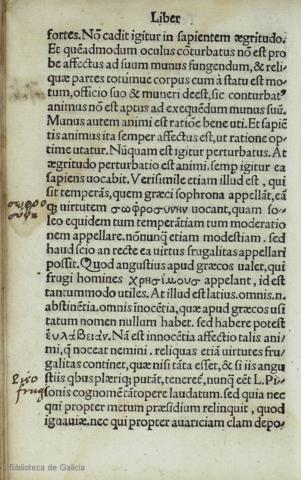 Liber
fortes. Nō cadit igitur in sapientem ægritudo.
Et quēadmodum oculus cōturbatus nō est pro
be affectus ad suum munus fungendum, & reli-
quæ partes totumue corpus cum à statu est mo-
tum, officio suo & muneri deest, sic conturbat9
animus nō est aptus ad exequēdum munus suū.
Munus autem animi est ratiōe bene uti. Et sapiē
tis animus ita semper affectus est, ut ratione op-
time utatur. Nūquam est igitur perturbatus. At
ægritudo perturbatio est animi. semp igitur ea
sapiens uocabit. Verisimile etiam illud est, qui
sit temperās, quem græci sophrona appellāt, eā
σωφρο
σύνη
q; uirtutem σωφροσύνην uocant, quam so-
leo equidem tum temperātiam tum moderatio
nem appellare. nōnunq̄ etiam modestiam. sed
haud scio an recte ea uirtus frugalitas appellari
possit. Quod angustius apud græcos ualet, qui
frugi homines χρησίμουσ appelant, id est
tantummodo utiles. At illud est latius. omnis.n.
abstinētia. omnis īnocētia, quæ apud græcos usi
tatum nomen nullum habet. sed habere potest
ἐυλάβειάν. Nā est innocētia affectio talis ani-
mi, q̄ noceat nemini. reliquas etiā uirtutes fru-
galitas continet, quæ nisi tāta esset, & si iis angu
L. Piso
frugi
stiis qbus plæriq; putāt, teneret, nunq̄ eēt L. Pi-
sonis cognomē tātopere laudatum. sed quia nec
qui propter metum præsidium relinquit, quod
ignauiæ. nec qui propter auariciam clam depo-
Biblioteca de Galicia